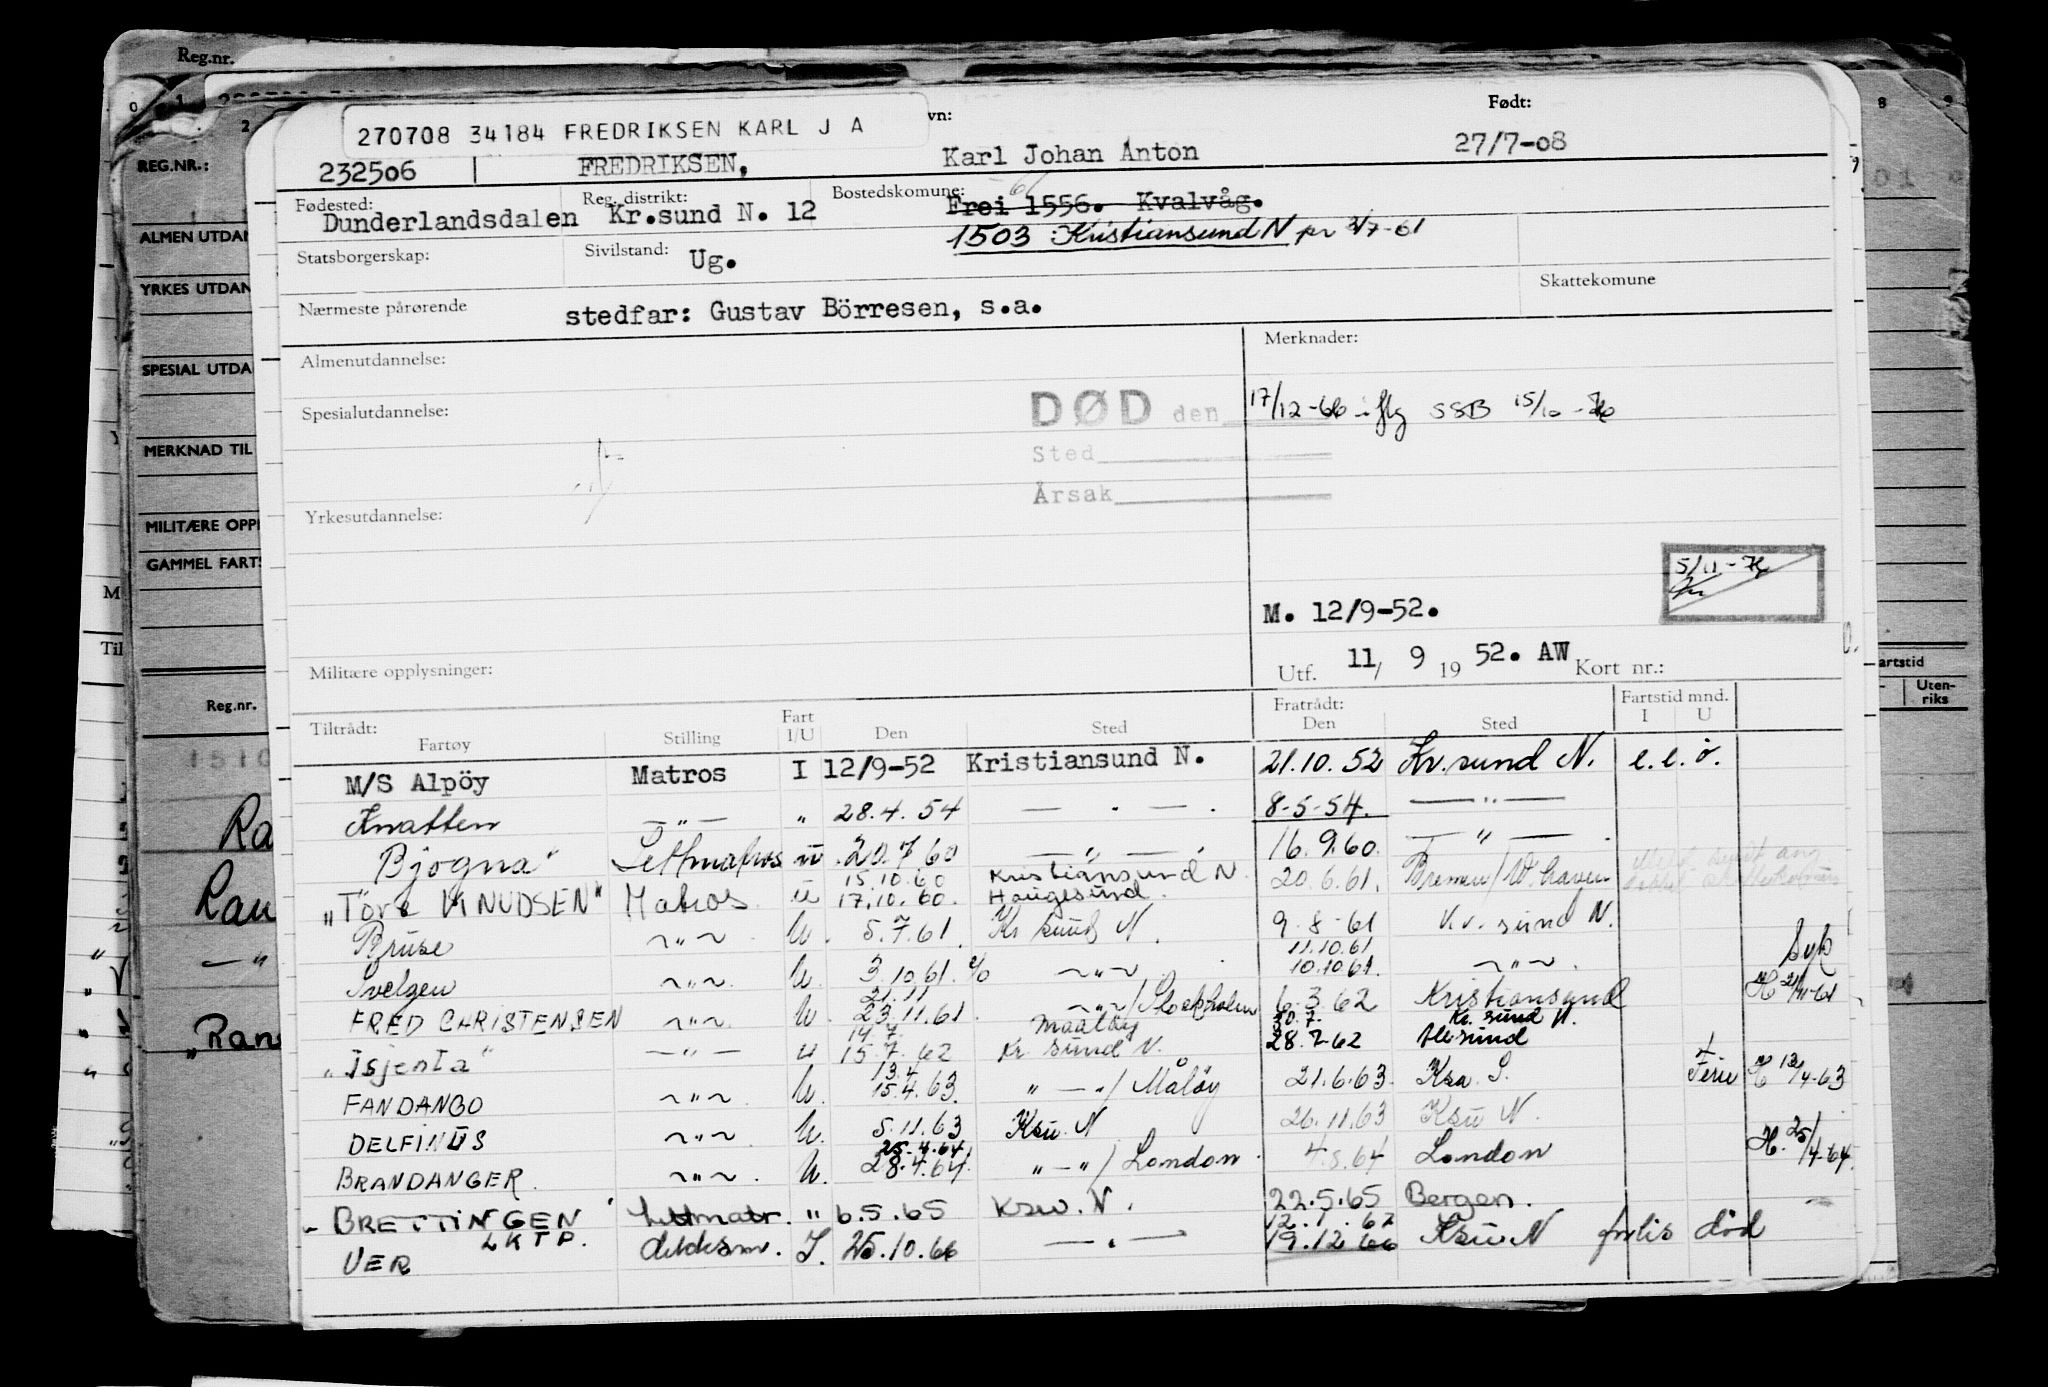 Reg.nr.
270708 34184 FREDRIKSEN KARL J A
vn:
Født:
REG.NR.:
232506 FREDRIKSEN, Karl Johan Anton 27/7-08
Fødested: Reg. distrikt: Bostedskomune:
Dunderlandsdalen Kr.sund N. 12 Frei 1556. Kvalvåg.
1503 Kristiansund N pr 3/7-61
ALMEN UTDAN
Statsborgerskap: Sivilstand: Ug.
Skattekomune
YRKES UTDAN
Nærmeste pårørende stedfar: Gustav Börresen, s.a.
Merknader:
Almenutdannelse:
SPESIAL UTDA
Spesialutdannelse:
DØD den 17/12-66 iflg SSB 15/10-
Sted
Årsak
MERKNAD TIL
Yrkesutdannelse:
MILITÆRE OPP
GAMMEL FARTS
5/11-
M. 12/9-52.
Utf. 11/ 9 19 52. AW Kort nr.:
Militære opplysninger:
artstid
Uten-
riks
Reg.nr.
Tiltrådt: Fartøy Stilling Fart I/U Den Sted Fratrådt: Den Sted Fartstid mnd. I U
M/S Alpöy Matros I 12/9-52 Kristiansund N. 21.10.52 Kr.sund N. e.e.o.
Knatten — " — " 28.4.54 — " — 8-5-54. — " —
Bjogna Lettmatros u 20.7.60 — " — 16.9.60. — " —
15.10.60 Kristiansund N.
"Tore KNUDSEN" Matros u 17.10.60. Haugesund. 20.6.61. Bremen/W.haven
Bruse ~ " ~ U. 5.7.61. Kr sund N. 9-8-61 Kr. sund N.
11.10.61
Svelgen ~ " ~ U. 3.10.61. ~ " ~ 10.10.61. ~ " ~ Syk
21.11
FRED CHRISTENSEN ~ " ~ U. 23.11.61. ~ " ~/Stockholm 6.3.62 Kristiansund H 21/11-61
14.7. Maaløy 30.7. Kr. sund N.
"Isjenta" — " — u 15.7.62 Kr. sund N. 28.7-62 Ålesund
13.4
FANDANGO ~ " ~ U. 15.4.63. " — "/Måløy 21.6.63. Ksa. S. Ferie H 13/4-63
DELFINUS ~ " ~ U. 5.11.63 Ksu. N 26.11.63 Ksu N.
25.4.64
BRANDANGER. ~ " ~ U. 28.4.64. " — "/London 4.8.64 London H. 25/4-64.
BRETTINGEN Lettmatr. " 6.5.65 Ksu. N. 22.5.65 Bergen.
LKTP. 12.1.67
VER dekksm. I. 25.10.66 — " — 19.12.66 Ksu N forlis död